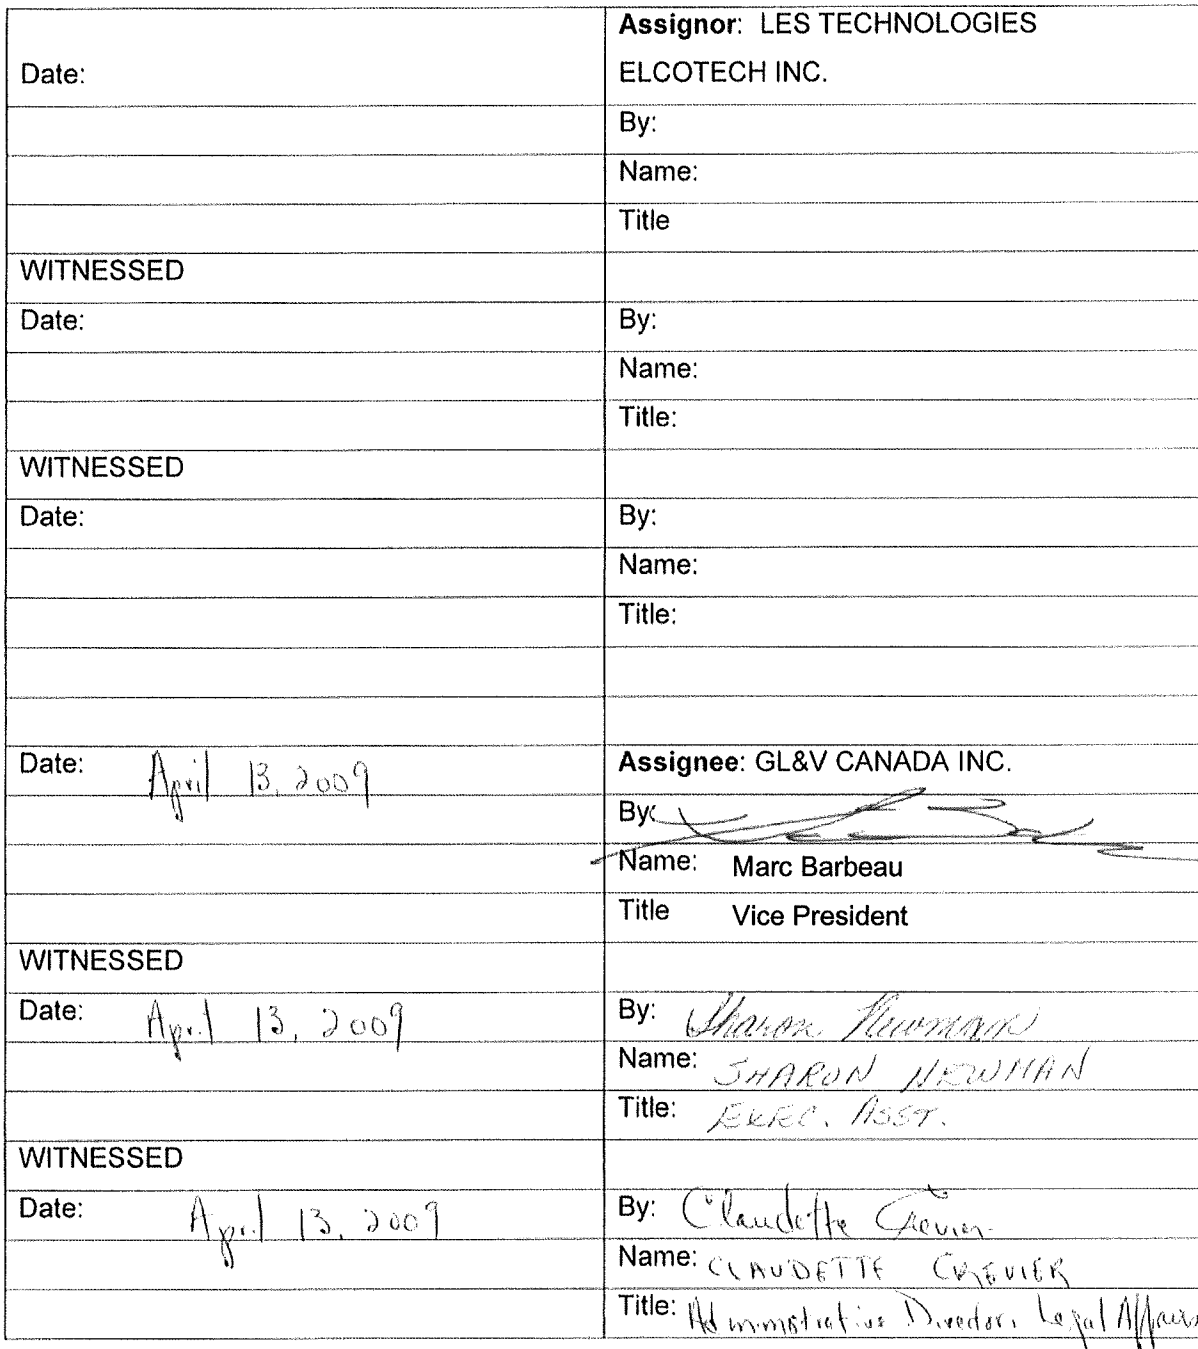 Assignor: LES TECHNOLOGIES
Date: ELCOTECH INC.
By:
Name:
Title
WITNESSED
Date: By:
Name:
Title:
WITNESSED
Date: By:
Name:
Title:
Date: April 13, 2009 Assignee: GL&V CANADA INC.
By:
Name: Marc Barbeau
Title Vice President
WITNESSED
Date: April 13, 2009 By: Sharon Newman
Name: SHARON NEWMAN
Title: EXEC. ASST.
WITNESSED
Date: April 13, 2009 By: Claudette Crevier
Name: CLAUDETTE CREVIER
Title: Administrative Director, Legal Affairs